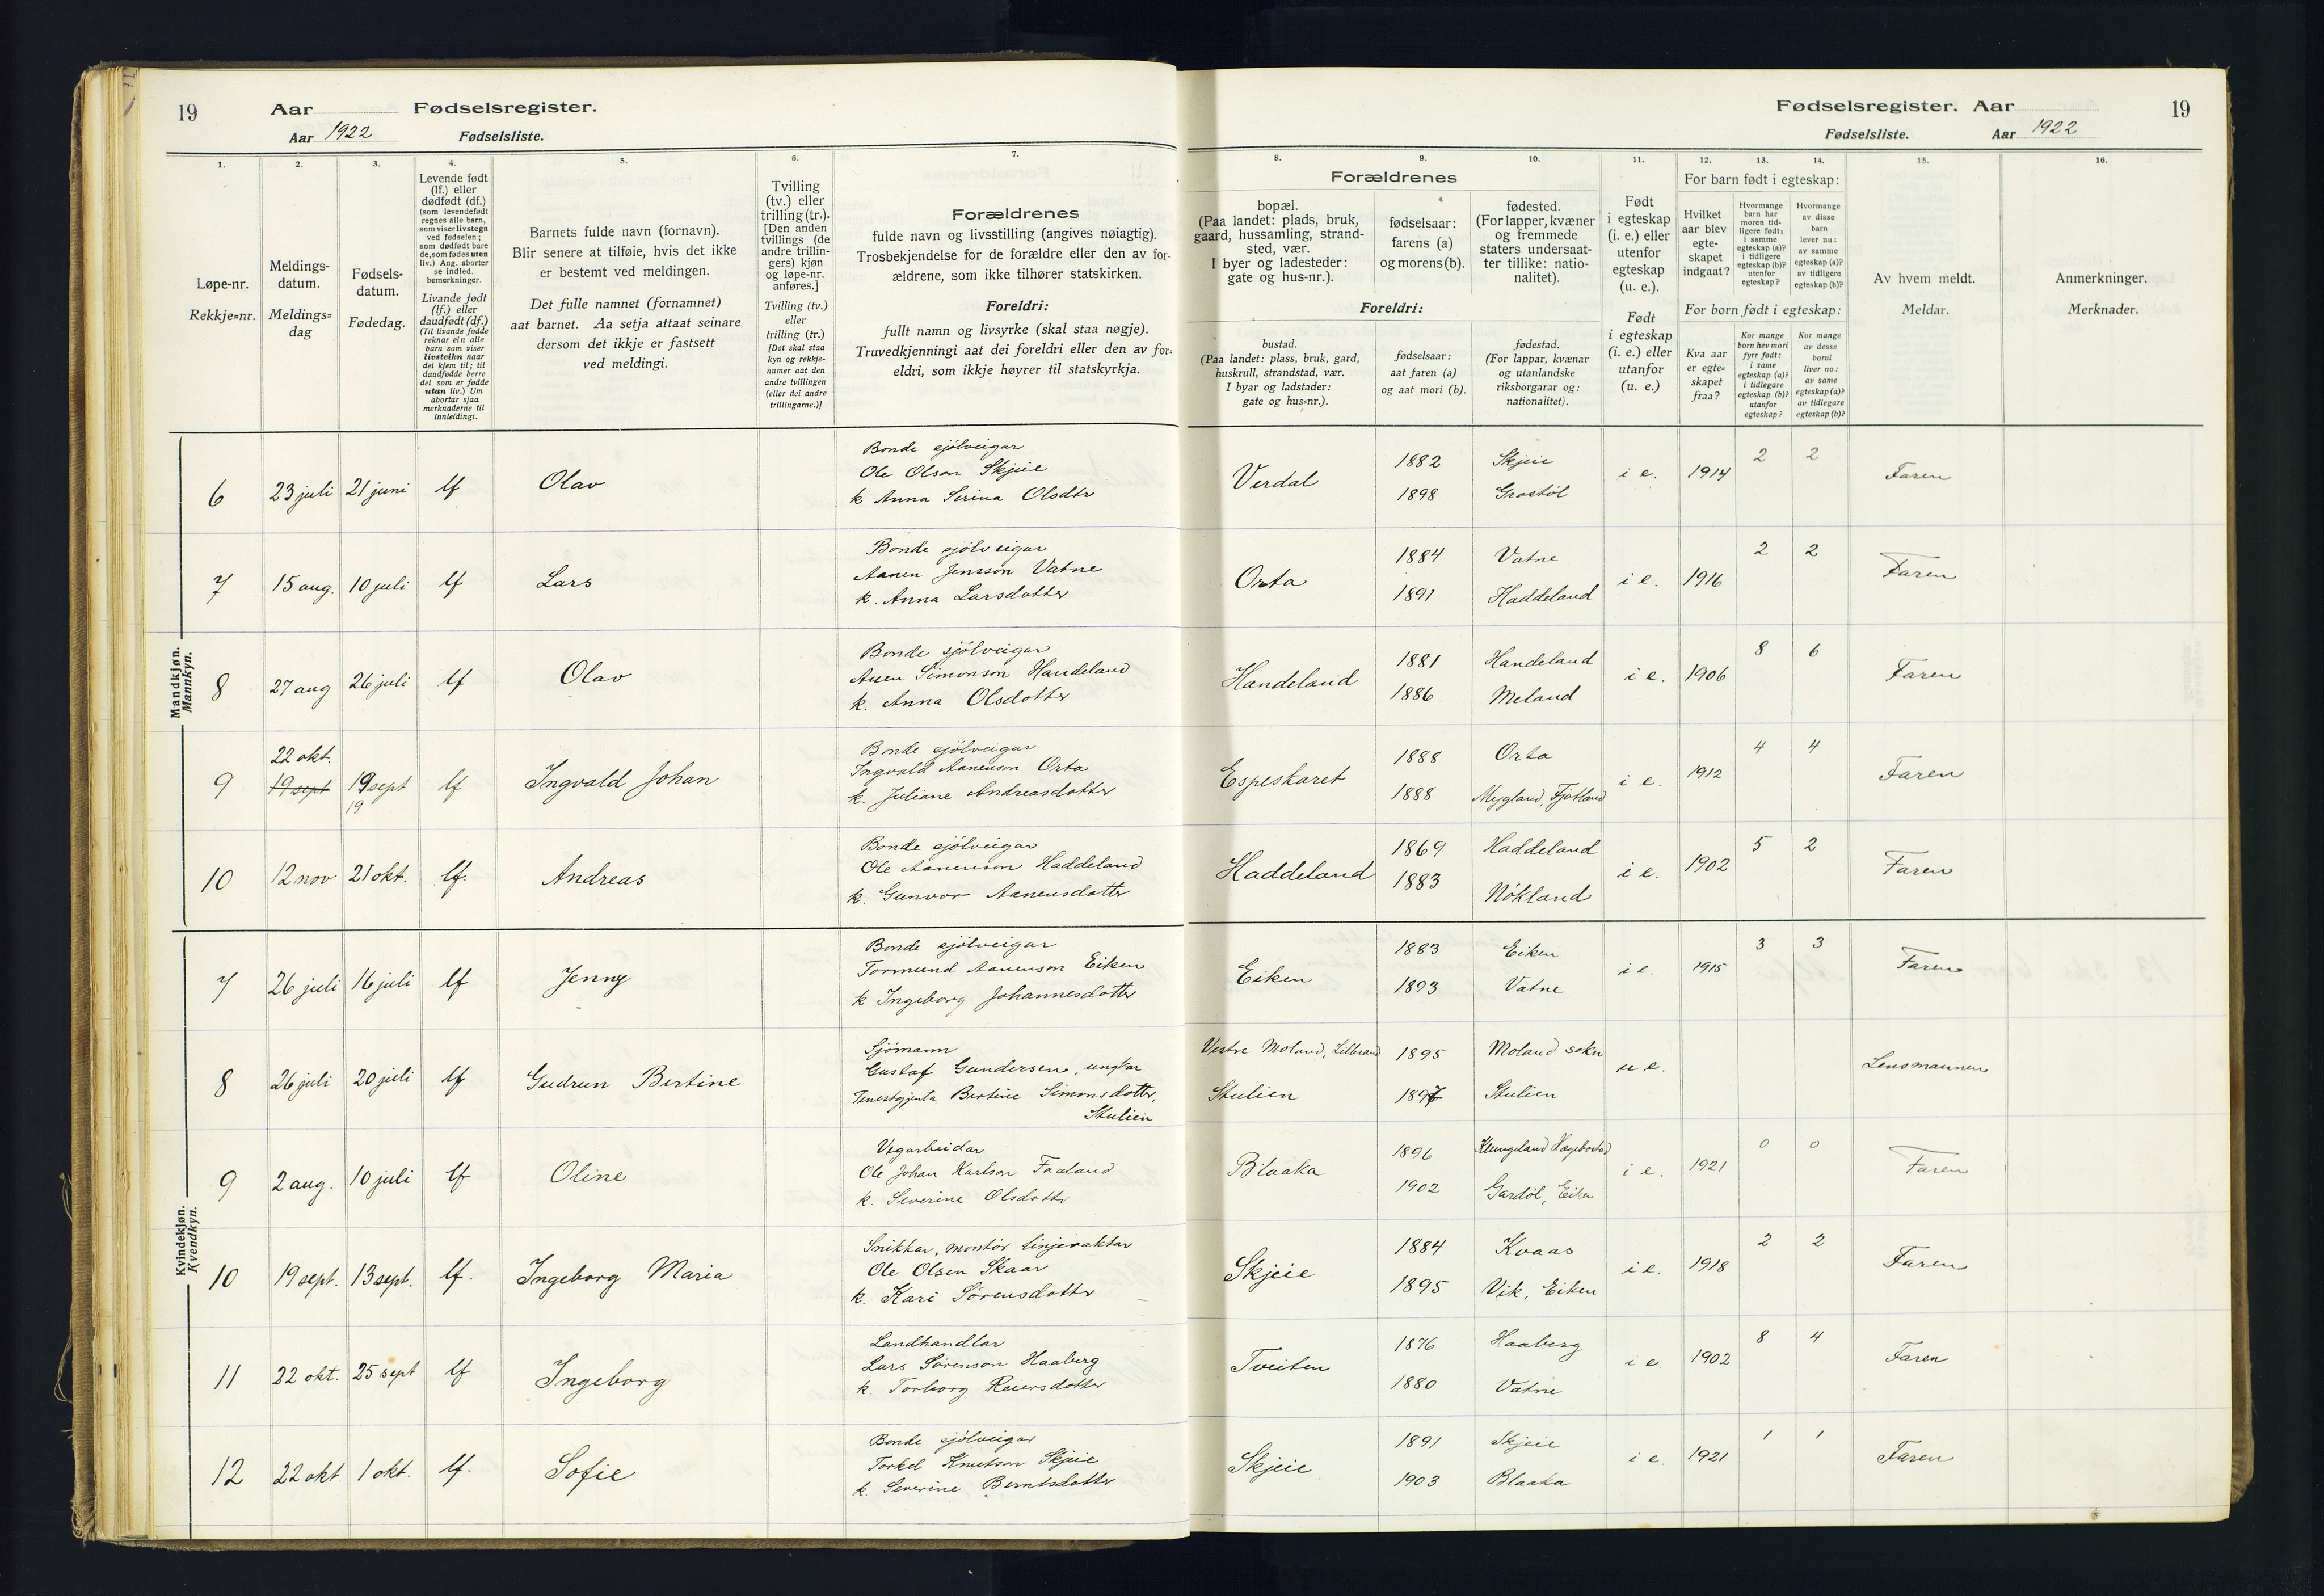 19
Aar Fødselsregister.
Aar 1922 Fødselsliste.
Fødselsregister. Aar
19
Fødselsliste. Aar 1922
1. 2. 3. 4. 5. 6. 7.
Løpe-nr.
Rekkje=nr.
Meldings-
datum.
Meldings=
dag
Fødsels-
datum.
Fødedag.
Levende født
(lf.) eller
dødfødt (df.)
(som levendefødt
regnes alle barn,
som viser livstegn
ved fødselen;
som dødfødt bare
de, som fødes uten
liv.) Ang. aborter
se indled.
bemerkninger.
Livande født
(lf.) eller
daudfødt (df.)
(Til livande fødde
reknar ein alle
barn som viser
livsteikn naar
dei kjem til; til
daudfødde berre
dei som er fødde
utan liv.) Um
abortar sjaa
merknaderne til
innleidingi.
Barnets fulde navn (fornavn).
Blir senere at tilføie, hvis det ikke
er bestemt ved meldingen.
Det fulle namnet (fornamnet)
aat barnet. Aa setja attaat seinare
dersom det ikkje er fastsett
ved meldingi.
Tvilling
(tv.) eller
trilling (tr.).
[Den anden
tvillings (de
andre trillin-
gers) kjøn
og løpe-nr.
anføres.]
Tvilling (tv.)
eller
trilling (tr.)
[Det skal staa
kyn og rekkje-
numer aat den
andre tvillingen
(eller dei andre
trillingarne.)]
Forældrenes
fulde navn og livsstilling (angives nøiagtig).
Trosbekjendelse for de forældre eller den av for-
ældrene, som ikke tilhører statskirken.
Foreldri:
fullt namn og livsyrke (skal staa nøgje).
Truvedkjenningi aat dei foreldri eller den av for=
eldri, som ikkje høyrer til statskyrkja.
8. 9. 10. 11. 12. 13. 14. 15. 16.
Forældrenes
bopæl.
(Paa landet: plads, bruk,
gaard, hussamling, strand-
sted, vær.
I byer og ladesteder:
gate og hus-nr.).
fødselsaar:
farens (a)
og morens (b).
fødested.
(For lapper, kvæner
og fremmede
staters undersaat-
ter tillike: natio-
nalitet).
Foreldri:
bustad.
(Paa landet: plass, bruk, gard,
huskrull, strandstad, vær.
I byar og ladstader:
gate og hus=nr.).
fødselsaar:
aat faren (a)
og aat mori (b).
fødestad.
(For lappar, kvænar
og utanlandske
riksborgarar og:
nationalitet).
Født
i egteskap
(i. e.) eller
utenfor
egteskap
(u. e.).
Født
i egteskap
(i. e.) eller
utanfor
(u. e.)
For barn født i egteskap:
Hvilket
aar blev
egte-
skapet
indgaat?
Hvormange
barn har
moren tid-
ligere født:
i samme
egteskap (a)?
i tidligere
egteskap (b)?
utenfor
egteskap?
Hvormange
av disse
barn
lever nu:
av samme
egteskap (a)?
av tidligere
egteskap (b)?
For born født i egteskap:
Kva aar
er egte=
skapet
fraa?
Kor mange
born hev mori
fyrr født:
i same
egteskap (a)?
i tidlegare
egteskap (b)?
utanfor
egteskap?
Kor mange
av desse
borni
liver no:
av same
egteskap (a)?
av tidlegare
egteskap (b)?
Av hvem meldt.
Meldar.
Anmerkninger.
Merknader.
Mandkjøn.
Mannkyn.
Bonde sjölveigar
Ole Olson Skjeie
6 23 juli 21 juni lf Olav k Anna Serina Olsdtr Verdal 1882 Skjeie i e. 1914 2 2 Faren
1898 Grostöl
Bonde sjölveigar
Aanen Jensson Vatne
7 15 aug. 10 juli lf Lars k. Anna Larsdotter Orta 1884 Vatne i e. 1916 2 2 Faren
1891 Haddeland
Bonde sjölveigar
Anen Simonson Handeland
8 27 aug 26 juli lf Olav k. Anna Olsdotter Handeland 1881 Handeland i e. 1906 8 6 Faren
1886 Meland
22 okt.
Bonde sjölveigar
Ingvald Aanenson Orta
9 19 sept 19 sept lf Ingvald Johan k. Juliane Andreasdotter Espeskaret 1888 Orta i e. 1912 4 4 Faren
19
1888 Mygland, Fjotland
Bonde sjölveigar
Ole Aanenson Haddeland
10 12 nov 21 okt. lf. Andreas k. Gunvor Aanensdotter Haddeland 1869 Haddeland i e. 1902 5 2 Faren
1883 Nökland
Kvindekjøn.
Kvendkyn.
Bonde sjölveigar
Tormund Aanenson Eiken
7 26 juli 16 juli lf Jenny k Ingeborg Johannesdotter Eiken 1883 Eiken i e. 1915 3 3 Faren
1893 Vatne
Sjömann
Gustaf Gundersen, ungkar
8 26 juli 20 juli lf Gudrun Bertine Tenestgjenta Bertine Simonsdotter, Stulien
Vestre Moland, 1895 Moland sokn u e. Lensmannen
Stulien 1897 Stulien
Vegarbeidar
Ole Johan Karlson Faaland
9 2 aug. 10 juli lf Oline k. Severine Olsdotter Blaaka 1896 Klungeland Hægebostad i e. 1921 0 0 Faren
1902 Gardöl, Eiken
Snikkar, montör linjevaktar
Ole Olsen Skaar
10 19 sept. 13 sept. lf. Ingeborg Maria k. Kari Sörensdotter Skjeie 1884 Kvaas i e. 1918 2 2 Faren
1895 Vik, Eiken
Landhandlar
Lars Sörenson Haaberg
11 22 okt. 25 sept lf Ingeborg k. Torborg Reiersdotter Tveiten 1876 Haaberg i e 1902 8 4 Faren
1880 Vatne
Bonde sjölveigar
Torkel Knutson Skjeie
12 22 okt 1 okt. lf. Sofie k. Severine Berntsdotter Skjeie 1891 Skjeie i e 1921 1 1 Faren
1903 Blaaka